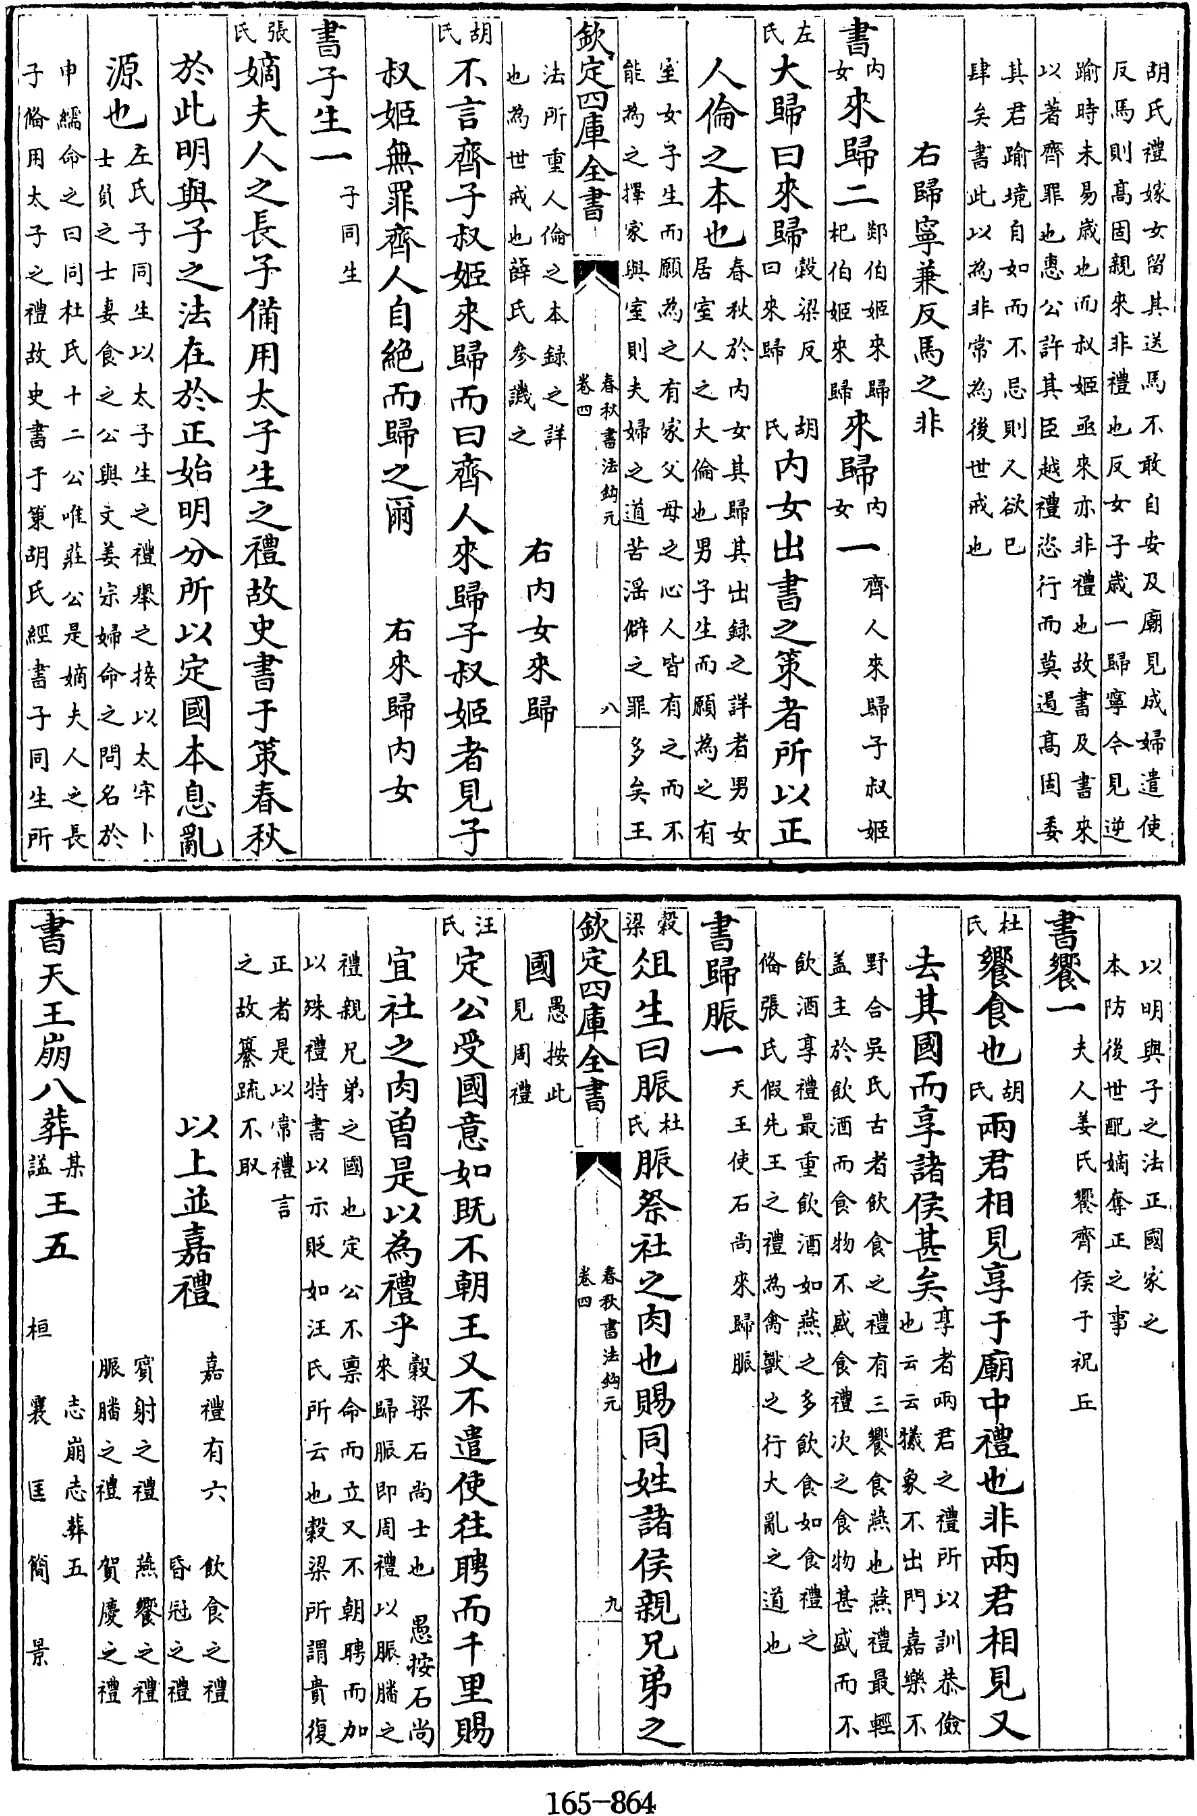 胡氏禮嫁女留其送馬不敢自安及廟見成婦遣使
反馬則髙固親来非禮也反女子歳一歸寧今見逆
踰時未易歳也而叔姬亟來亦非禮也故書及書來
以著齊罪也惠公許其臣越禮恣行而莫遏髙固委
其君踰境自如而不忌則人欲已
肆矣書此以為非常為後世戒也
右歸寧兼反馬之非
書內女來歸二郯伯姬來歸杞伯姬來歸來歸內女一齊人來歸子叔姬
左氏大歸曰來歸穀梁反曰來歸胡氏內女出書之策者所以正
人倫之本也春秋於内女其歸其出録之詳者男女居室人之大倫也男子生而願為之有
室女子生而願為之有家父母之心人皆有之而不
能為之擇家與室則夫婦之道苦淫僻之罪多矣王
欽定四庫全書
春秋書法鈎元
卷四
八
法所重人倫之本録之詳
也為世戒也薛氏參譏之
右内女來歸
胡氏不言齊子叔姬來歸而曰齊人來歸子叔姬者見子
叔姬無罪齊人自絶而歸之爾右來歸内女
書子生一子同生
張氏嫡夫人之長子備用太子生之禮故史書于策春秋
於此明與子之法在於正始明分所以定國本息亂
源也左氏子同生以太子生之禮舉之接以太牢卜士負之士妻食之公與文姜宗婦命之問名於
申繻命之曰同杜氏十二公唯莊公是嫡夫人之長
子備用太子之禮故史書于策胡氏經書子同生所
以明與子之法正國家之
本防後世配嫡奪正之事
書饗一夫人姜氏饗齊侯于祝丘
杜氏饗食也胡氏兩君相見享于廟中禮也非兩君相見又
去其國而享諸侯甚矣享者兩君之禮所以訓恭儉也云云犠象不出門嘉樂不
野合吳氏古者飲食之禮有三饗食燕也燕禮最輕
盖主於飲酒而食物不盛食禮次之食物甚盛而不
飲酒享禮最重飲酒如燕之多飲食如食禮之
備張氏假先王之禮為禽獸之行大亂之道也
書歸脤一天王使石尚來歸脤
穀梁俎生曰脤杜氏脤祭社之肉也賜同姓諸侯親兄弟之
欽定四庫全書
春秋書法鈎元
卷四
九
國愚按此見周禮
汪氏定公受國意如既不朝王又不遣使往聘而千里賜
宜社之肉曽是以為禮乎穀梁石尚士也愚按石尚來歸脤即周禮以脤膰之
禮親兄弟之國也定公不禀命而立又不朝聘而加
以殊禮特書以示貶如汪氏所云也穀梁所謂貴復
正者是以常禮言
之故纂疏不取
以上並嘉禮嘉禮有六飲食之禮昏冠之禮
賓射之禮燕饗之禮
脤膰之禮賀慶之禮
書天王崩八葬某謚王五志崩志葬五桓襄匡簡景
165-864